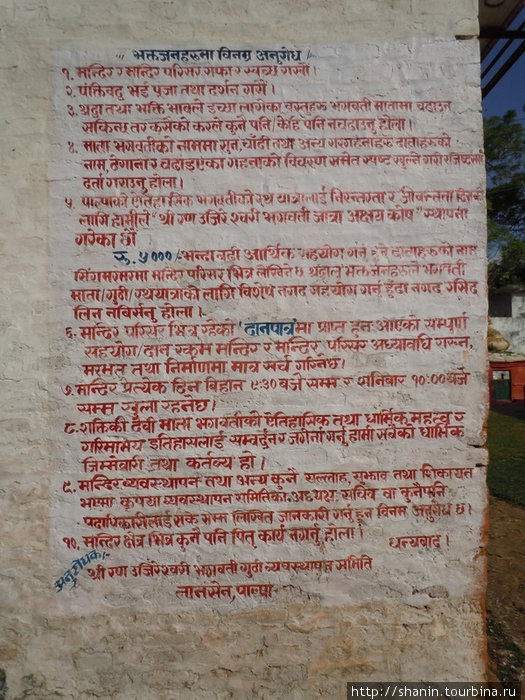 ॥ भक्तजनहरुमा विनम्र अनुरोध ।
१. मन्दिर र मन्दिर परिसर सफा र स्वच्छ गरौं ।
२. पंक्तिवद्ध भई पूजा तथा दर्शन गरौं ।
३. श्रद्धा तथा भक्ति भावले ईच्छा लागेका वस्तुहरु भगवती मातामा चढाउन
सकिन्छ तर कसैको करले कुनै पनि / केहि पनि नचढाउनु होला ।
४. माता भगवतीको नाममा सुन, चाँदी तथा अन्य गरगहनाहरु दाताहरुको
नाम, ठेगाना र चढाइएका गहनाको विवरण समेत स्पष्ट खुल्ने गरी रजिष्टरमा
दर्ता गराउनु होला ।
५. पाल्पाको ऐतिहासिक भगवतीको रथ यात्रालाई निरन्तरता र जीवन्तता दिनको
लागि हामीले "श्री रण उजिरेश्वरी भगवती जात्रा अक्षय कोष" स्थापना
गरेका छौं
रु. ५०००/- भन्दा बढी आर्थिक सहयोग गर्नु हुने दाताहरुको नाम
सिंगमरमरमा मन्दिर परिसर भित्र लेखिने छ श्रद्धालु भक्तजनहरुले भगवती
माता / गुठी / रथयात्राको लागि विशेष नगद सहयोग गर्नु हुँदा नगद रसिद
लिन नबिर्सनु होला ।
६. मन्दिर परिसर भित्र रहेको 'दानपात्र'मा प्राप्त हुन आएको सम्पूर्ण
सहयोग / दान रकम मन्दिर र मन्दिर परिसर अध्यावधि गराउन,
मरमत तथा निर्माणमा मात्र खर्च गरिनेछ ।
७. मन्दिर प्रत्येक दिन बिहान ९:३० बजे सम्म र शनिबार १०:०० बजे
सम्म खुला रहनेछ ।
८. शक्तिकी दैवी माता भगवतीको ऐतिहासिक तथा धार्मिक महत्व र
गरिमामय इतिहासलाई सम्वर्द्धन र जगेर्ना गर्नु हामी सबैको धार्मिक
जिम्मेवारी तथा कर्तव्य हो ।
९. मन्दिर व्यवस्थापन तथा अन्य कुनै सल्लाह, सुझाव तथा शिकायत
भएमा कृपया व्यवस्थापन समितिका अध्यक्ष, सचिव वा कुनैपनि
पदाधिकारीलाई सके सम्म लिखित जानकारी गर्नु हुन विनम्र अनुरोध छ ।
१०. मन्दिर क्षेत्र भित्र कुनै पनि पितृ कार्य नगर्नु होला ।
धन्यवाद् ।
अनुरोधक:-
श्री रण उजिरेश्वरी भगवती गुठी व्यवस्थापन समिति
तानसेन, पाल्पा
http://shanin.tourbina.ru